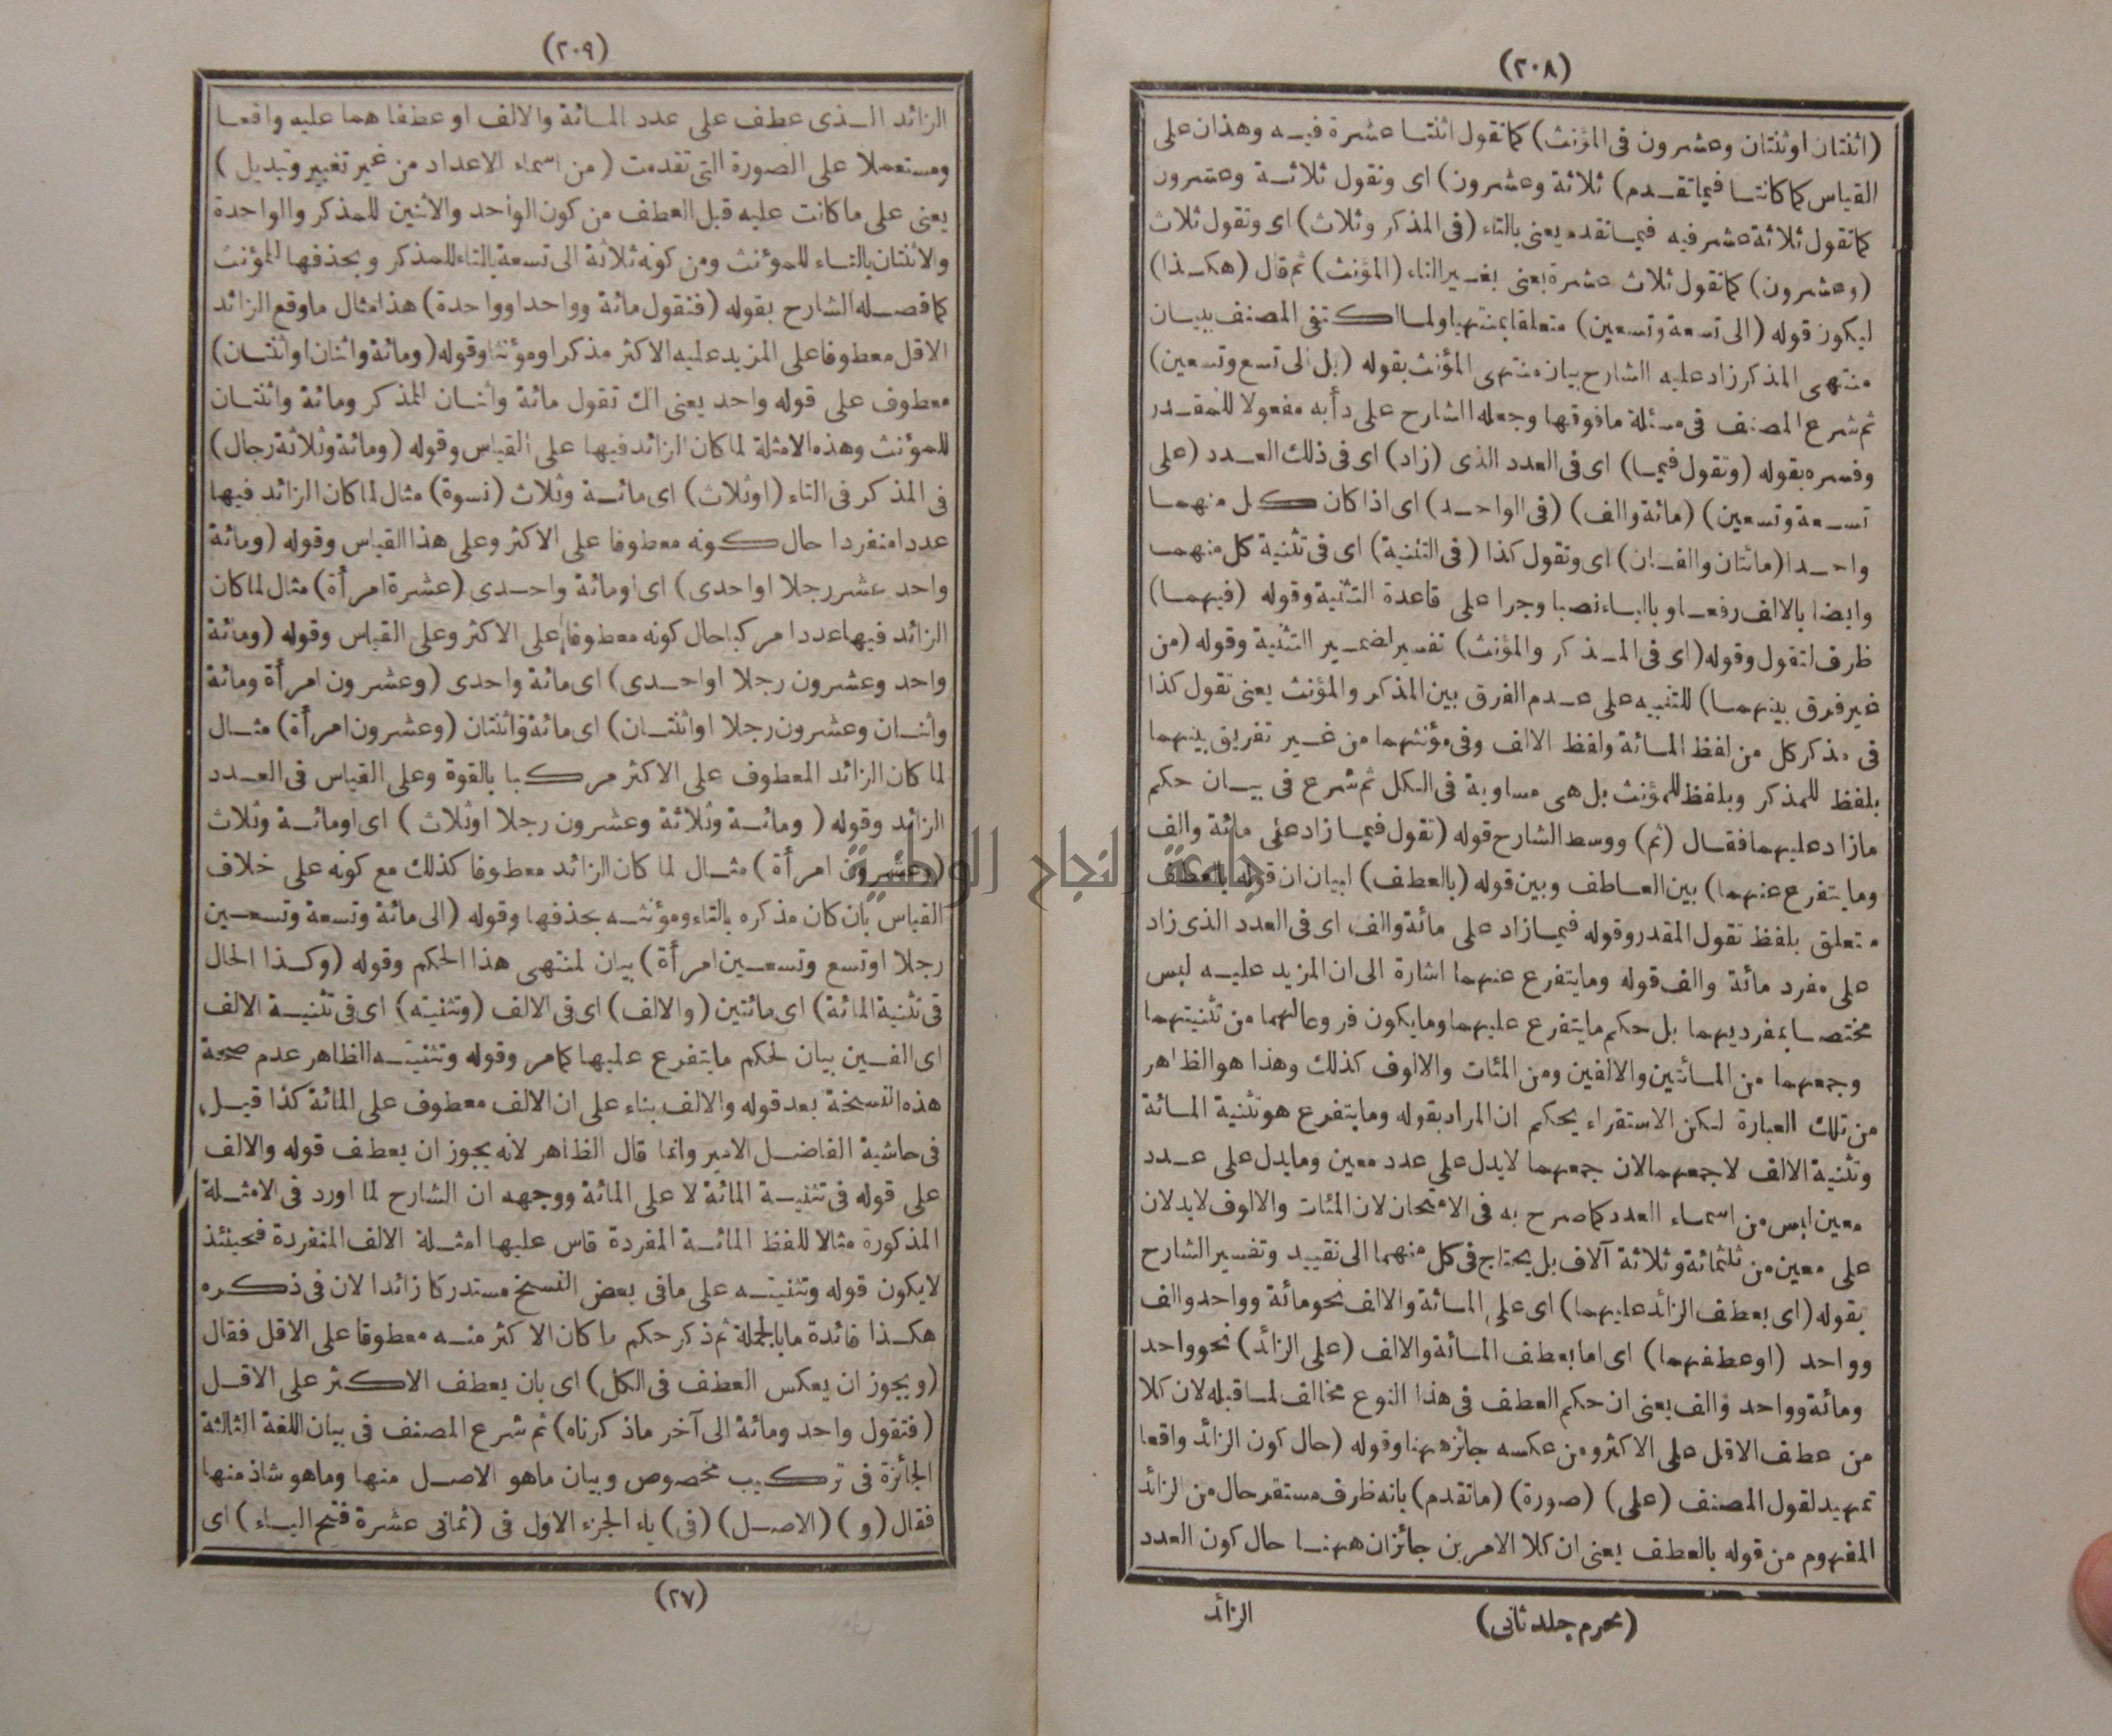 (٢٠٨)
(اثنتان او ثنتان وعشرون فى المؤنث) كما تقول اثنتا عشرة فيه وهذان على
القياس كما كانتا فيما تقدم) ثلاثة وعشرون) اى وتقول ثلاثة وعشرون
كما تقول ثلاثة عشر فيه فيما تقدم يعنى بالتاء (فى المذكر وثلاث) اى وتقول ثلاث
(وعشرون) كما تقول ثلاث عشرة يعنى بغير التاء (المؤنث) ثم قال (هكذا)
ليكون قوله (الى تسعة وتسعين) متعلقا بمنتهيا ولما اكتفى المصنف ببيان
منتهى المذكر زاد عليه الشارح بيان منتهى المؤنث بقوله (بل الى تسع وتسعين)
ثم شرع المصنف فى مسئلة ما فوقها وجعله الشارح على دأبه مفعولا للمقدر
وفسره بقوله (وتقول فيما) اى فى العدد الذى (زاد) اى فى ذلك العدد (على
تسعة وتسعين) (مائة والف) (فى الواحد) اى اذا كان كل منهما
واحدا (مائتان والفان) اى وتقول كذا (فى التثنية) اى فى تثنية كل منهما
وايضا بالالف رفعا وبالياء نصبا وجرا على قاعدة التثنية وقوله (فيهما)
ظرف لتقول وقوله (اى فى المذكر والمؤنث) تفسير لضمير التثنية وقوله (من
غير فرق بينهما) للتنبيه على عدم الفرق بين المذكر والمؤنث يعنى تقول كذا
فى مذكر كل من لفظ المائة ولفظ الالف وفى مؤنثهما من غير تفريق بينهما
بلفظ للمذكر وبلفظ للمؤنث بل هى مساوية فى الكل ثم شرع فى بيان حكم
مازاد عليهما فقال (ثم) ووسط الشارح قوله (تقول فيما زاد على مائة والف
وما يتفرع عنهما) بين العاطف وبين قوله (بالعطف) لبيان ان قوله بالعطف
متعلق بلفظ تقول المقدر وقوله فيما زاد على مائة والف اى فى العدد الذى زاد
على مفرد مائة والف قوله وما يتفرع عنهما اشارة الى ان المزيد عليه ليس
مختصا بمفرديهما بل حكم ما يتفرع عليهما وما يكون فروعا لهما من تثنيتهما
وجمعهما من المأتين والالفين ومن المئات والالوف كذلك وهذا هو الظاهر
من تلك العبارة لكن الاستقراء يحكم ان المراد بقوله وما يتفرع هو تثنية المائة
وتثنية الالف لا جمعهما لان جمعهما لا يدل على عدد معين وما يدل على عدد
معين ليس من اسماء العدد كما صرح به فى الامتحان لان المئات والالوف لا يدلان
على معين من ثلثمائة وثلاثة آلاف بل يحتاج فى كل منهما الى تقييد وتفسير الشارح
بقوله (اى بعطف الزائد عليهما) اى على المائة والالف نحو مائة وواحد والف
وواحد (او عطفهما) اى اما بعطف المائة والالف (على الزائد) نحو واحد
ومائة وواحد والف يعنى ان حكم العطف فى هذا النوع مخالف لما قبله لان كلا
من عطف الاقل على الاكثر ومن عكسه جائز ههنا وقوله (حال كون الزائد واقعا
تمهيد لقول المصنف (على) (صورة) (ما تقدم) بانه ظرف مستقر حال من الزائد
المفهوم من قوله بالعطف يعنى ان كلا الامرين جائزان ههنا حال كون العدد
(محرم جلد ثانى)
الزائد
(٢٠٩)
الزائد الذى عطف على عدد المائة والالف او عطفا هما عليه واقعا
ومستعملا على الصورة التى تقدمت (من اسماء الاعداد من غير تغيير وتبديل)
يعنى على ما كانت عليه قبل العطف من كون الواحد والاثنين للمذكر والواحدة
والاثنتان بالتاء للمؤنث ومن كونه ثلاثة الى تسعة بالتاء للمذكر وبحذفها للمؤنث
كما فصله الشارح بقوله (فتقول مائة وواحد او واحدة) هذا مثال ما وقع الزائد
الاقل معطوفا على المزيد عليه الاكثر مذكرا ومؤنثا وقوله (ومائة واثنان او اثنتان)
معطوف على قوله واحد يعنى انك تقول مائة واثنان للمذكر ومائة واثنتان
للمؤنث وهذه الامثلة لما كان الزائد فيها على القياس وقوله (ومائة وثلاثة رجال)
فى المذكر فى التاء (او ثلاث) اى مائة وثلاث (نسوة) مثال لما كان الزائد فيها
عددا منفردا حال كونه معطوفا على الاكثر وعلى هذا القياس وقوله (ومائة
واحد عشر رجلا او احدى) اى او مائة واحدى (عشرة امرأة) مثال لما كان
الزائد فيها عددا مركبا حال كونه معطوفا على الاكثر وعلى القياس وقوله (ومائة
واحد وعشرون رجلا او احدى) اى مائة واحدى (وعشرون امرأة ومائة
واثنان وعشرون رجلا او اثنتان) اى مائة واثنتان (وعشرون امرأة) مثال
لما كان الزائد المعطوف على الاكثر مركبا بالقوة وعلى القياس فى العدد
الزائد وقوله (ومائة وثلاثة وعشرون رجلا او ثلاث) اى او مائة وثلاث
(وعشرون امرأة) مثال لما كان الزائد معطوفا كذلك مع كونه على خلاف
القياس بان كان مذكره بالتاء ومؤنثه بحذفها وقوله (الى مائة وتسعة وتسعين
رجلا او تسع وتسعين امرأة) بيان لمنتهى هذا الحكم وقوله (وكذا الحال
فى تثنية المائة) اى مائتين (والالف) اى فى الالف (وتثنيته) اى فى تثنية الالف
اى الفين بيان لحكم ما يتفرع عليها كما مر وقوله وتثنيته الظاهر عدم صحة
هذه النسخة بعد قوله والالف بناء على ان الالف معطوف على المائة كذا قيل
فى حاشية الفاضل الامير وانما قال الظاهر لانه يجوز ان يعطف قوله والالف
على قوله فى تثنية المائة لا على المائة ووجهه ان الشارح لما اورد فى الامثلة
المذكورة مثالا للفظ المائة المفردة قاس عليها امثلة الالف المنفردة فحينئذ
لا يكون قوله وتثنيته على ما فى بعض النسخ مستدركا زائدا لان فى ذكره
هكذا فائدة ما بالجملة ثم ذكر حكم ما كان الاكثر منه معطوفا على الاقل فقال
(ويجوز ان يعكس العطف فى الكل) اى بان يعطف الاكثر على الاقل
(فتقول واحد ومائة الى آخر ما ذكرناه) ثم شرع المصنف فى بيان اللغة الثالثة
الجائزة فى تركيب مخصوص وبيان ما هو الاصل منها وما هو شاذ منها
فقال (و) (الاصل) (فى) ياء الجزء الاول فى (ثمانى عشرة فتح الياء) اى
(٢٧)
جامعة النجاح الوطنية